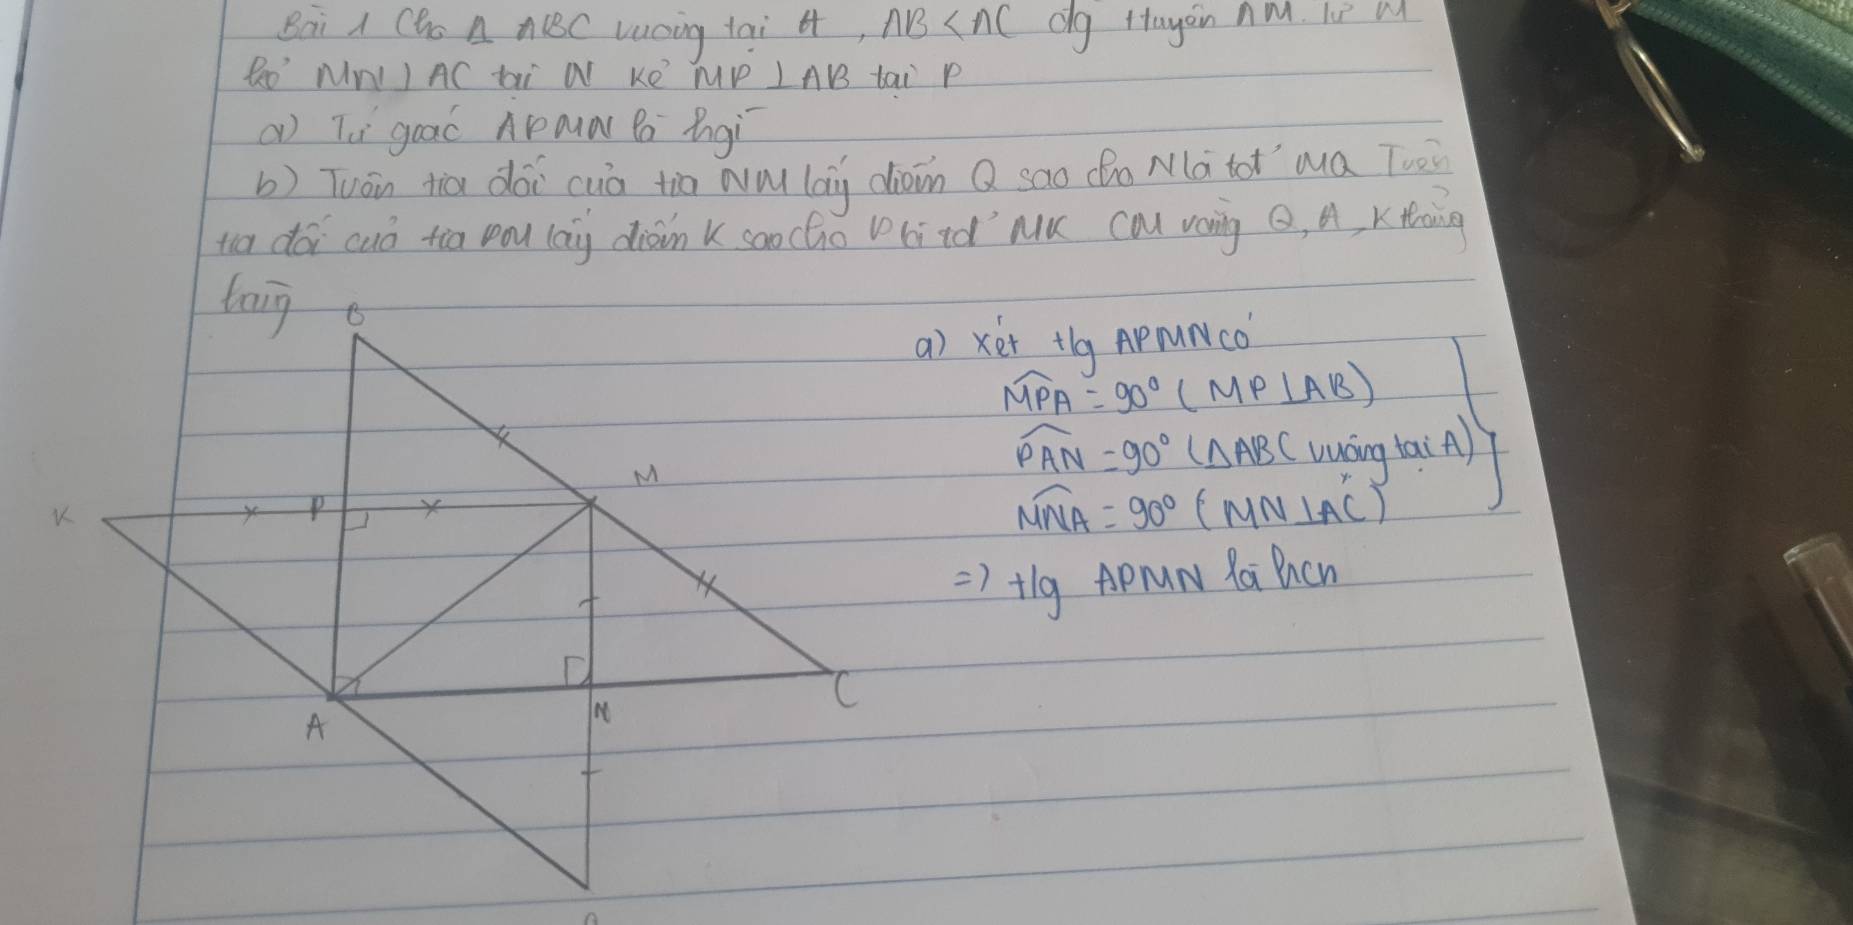 Bài 1 Cho Δ ABC vuông tại A, AB < AC đg tuyến AM. Từ M
kẻ MN ⊥ AC tại N kẻ MP ⊥ AB tại P
a) Tứ giác APMN là hgì
b) Trên tia đối của tia NM lấy điểm Q sao cho N là tđ MQ Trên
tia đối của tia PM lấy điểm K sao cho P là tđ MK CM Q, A, K thẳng
hàng
B
a) Xét t/g APMN có
MPA = 90° (MP ⊥ AB)
PAN = 90° (ΔABC vuông tại A)
MNA = 90° (MN ⊥ AC)
=> t/g APMN là hcn
M
K
P
A
N
C